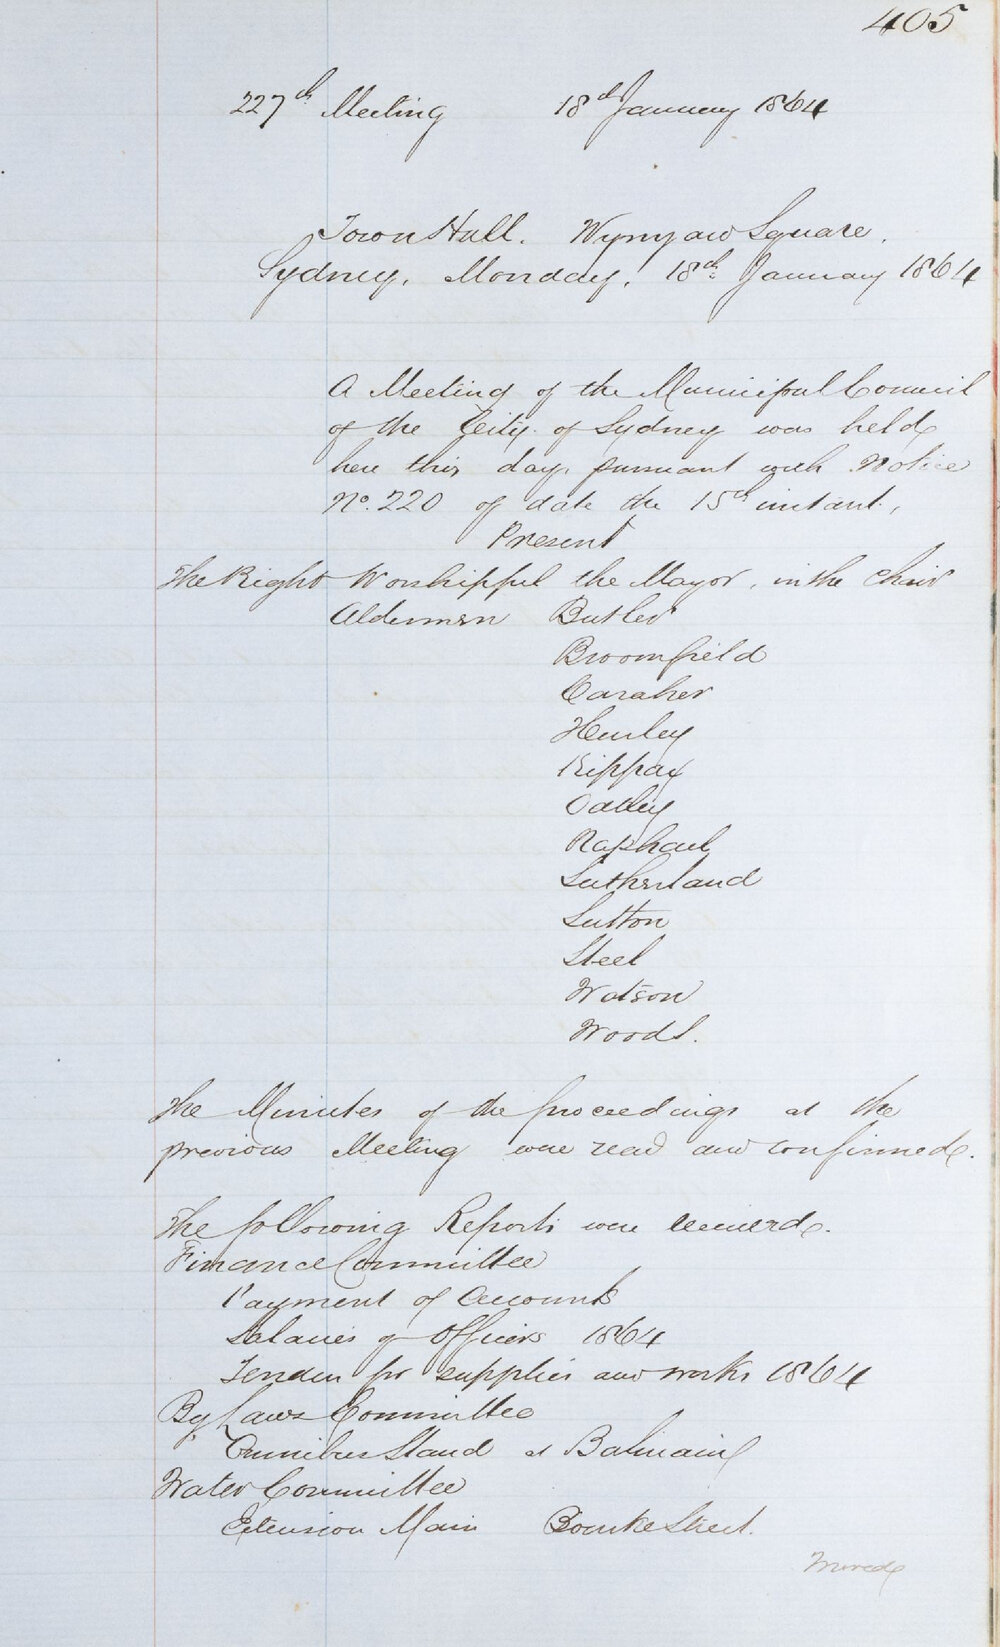 405
227th Meeting 18th January 1864
Town Hall. Wynyard Square.
Sydney, Monday, 18th January 1864
A Meeting of the Municipal Council
of the City of Sydney was held
here this day, pursuant with Notice
No. 220 of date the 15th instant,
Present
The Right Worshipful the Mayor, in the Chair
Aldermen Butler
Broomfield
Caraher
Hurley
Kippax
Oatley
Raphael
Sutherland
Sutton
Steel
Watson
Woods.
The Minutes of the proceedings at the
previous Meeting were read and confirmed.
The following Reports were received.
Finance Committee
Payment of Accounts
Salaries of Officers 1864
Tenders for supplies and works 1864
By Laws Committee
Omnibus Stand at Balmain
Water Committee
Extension Main Bourke Street.
Moved